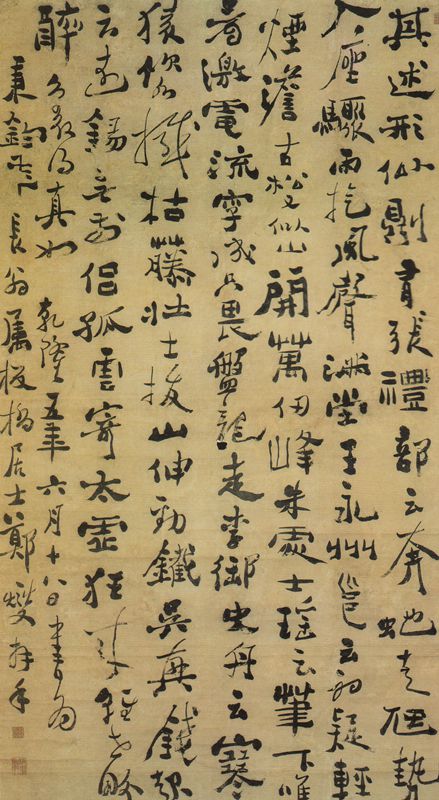 其述形似則有張禮部云奔蛇走虺勢
入座驟雨旋風聲滿堂王永州邕云初疑輕
煙澹古松又似山開萬仞峰朱處士瑤云筆下唯
看激電流字成只畏盤龍走李御史舟云寒
猿飲水撼枯藤壯士拔山伸勁鐵吳興錢起
云遠錫無前侶孤雲寄太虛狂來輕世界
醉裏得真如 乾隆五年六月十八日書為
秉鈞長翁屬板橋居士鄭燮